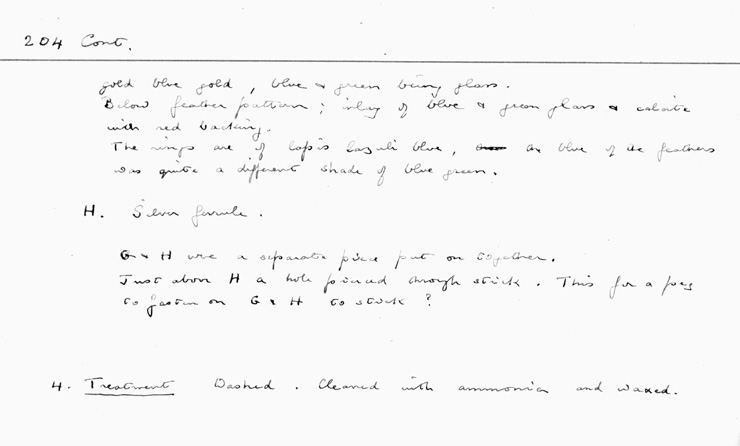 204 Cont.
gold blue gold, blue & green being glass.
Below feather pattern; inlay of blue & green glass & calcite
with red backing.
The rings are of lapis lazuli blue, the blue of the feathers
was quite a different shade of blue green.
H. Silver ferrule.
G & H were a separate piece put on together.
Just above H a hole pierced through stick. This for a peg
to fasten on G & H to stick?
4. Treatment Washed. Cleaned with ammonia and waxed.